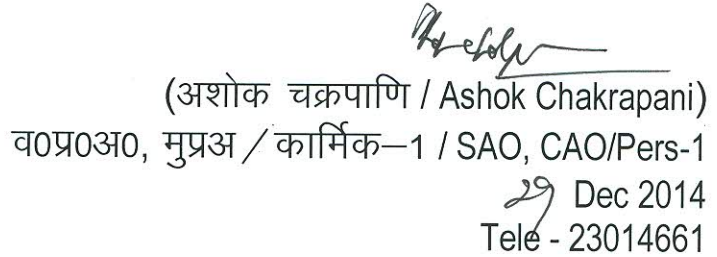 (अशोक चक्रपाणि / Ashok Chakrapani)
व0प्र0अ0, मुप्रअ / कार्मिक–1 / SAO, CAO/Pers-1
29 Dec 2014
Tele - 23014661